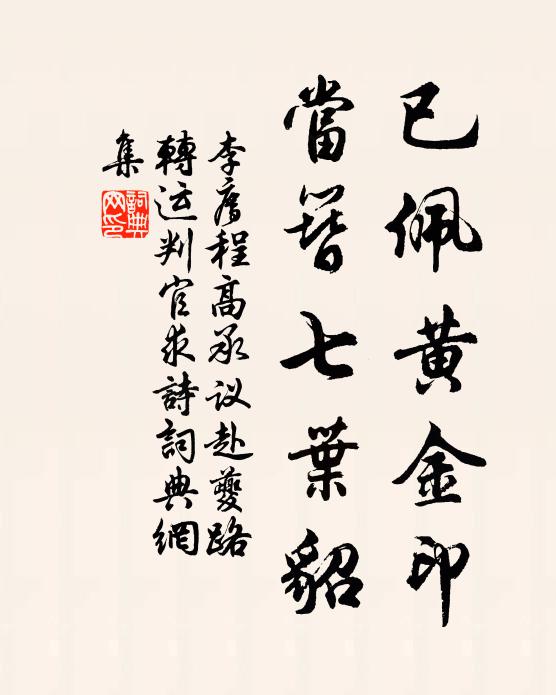 已佩黄金印
當簪七葉貂
李廌程高承议赴夔路
轉运判官求詩詞典網
集
詞典网印